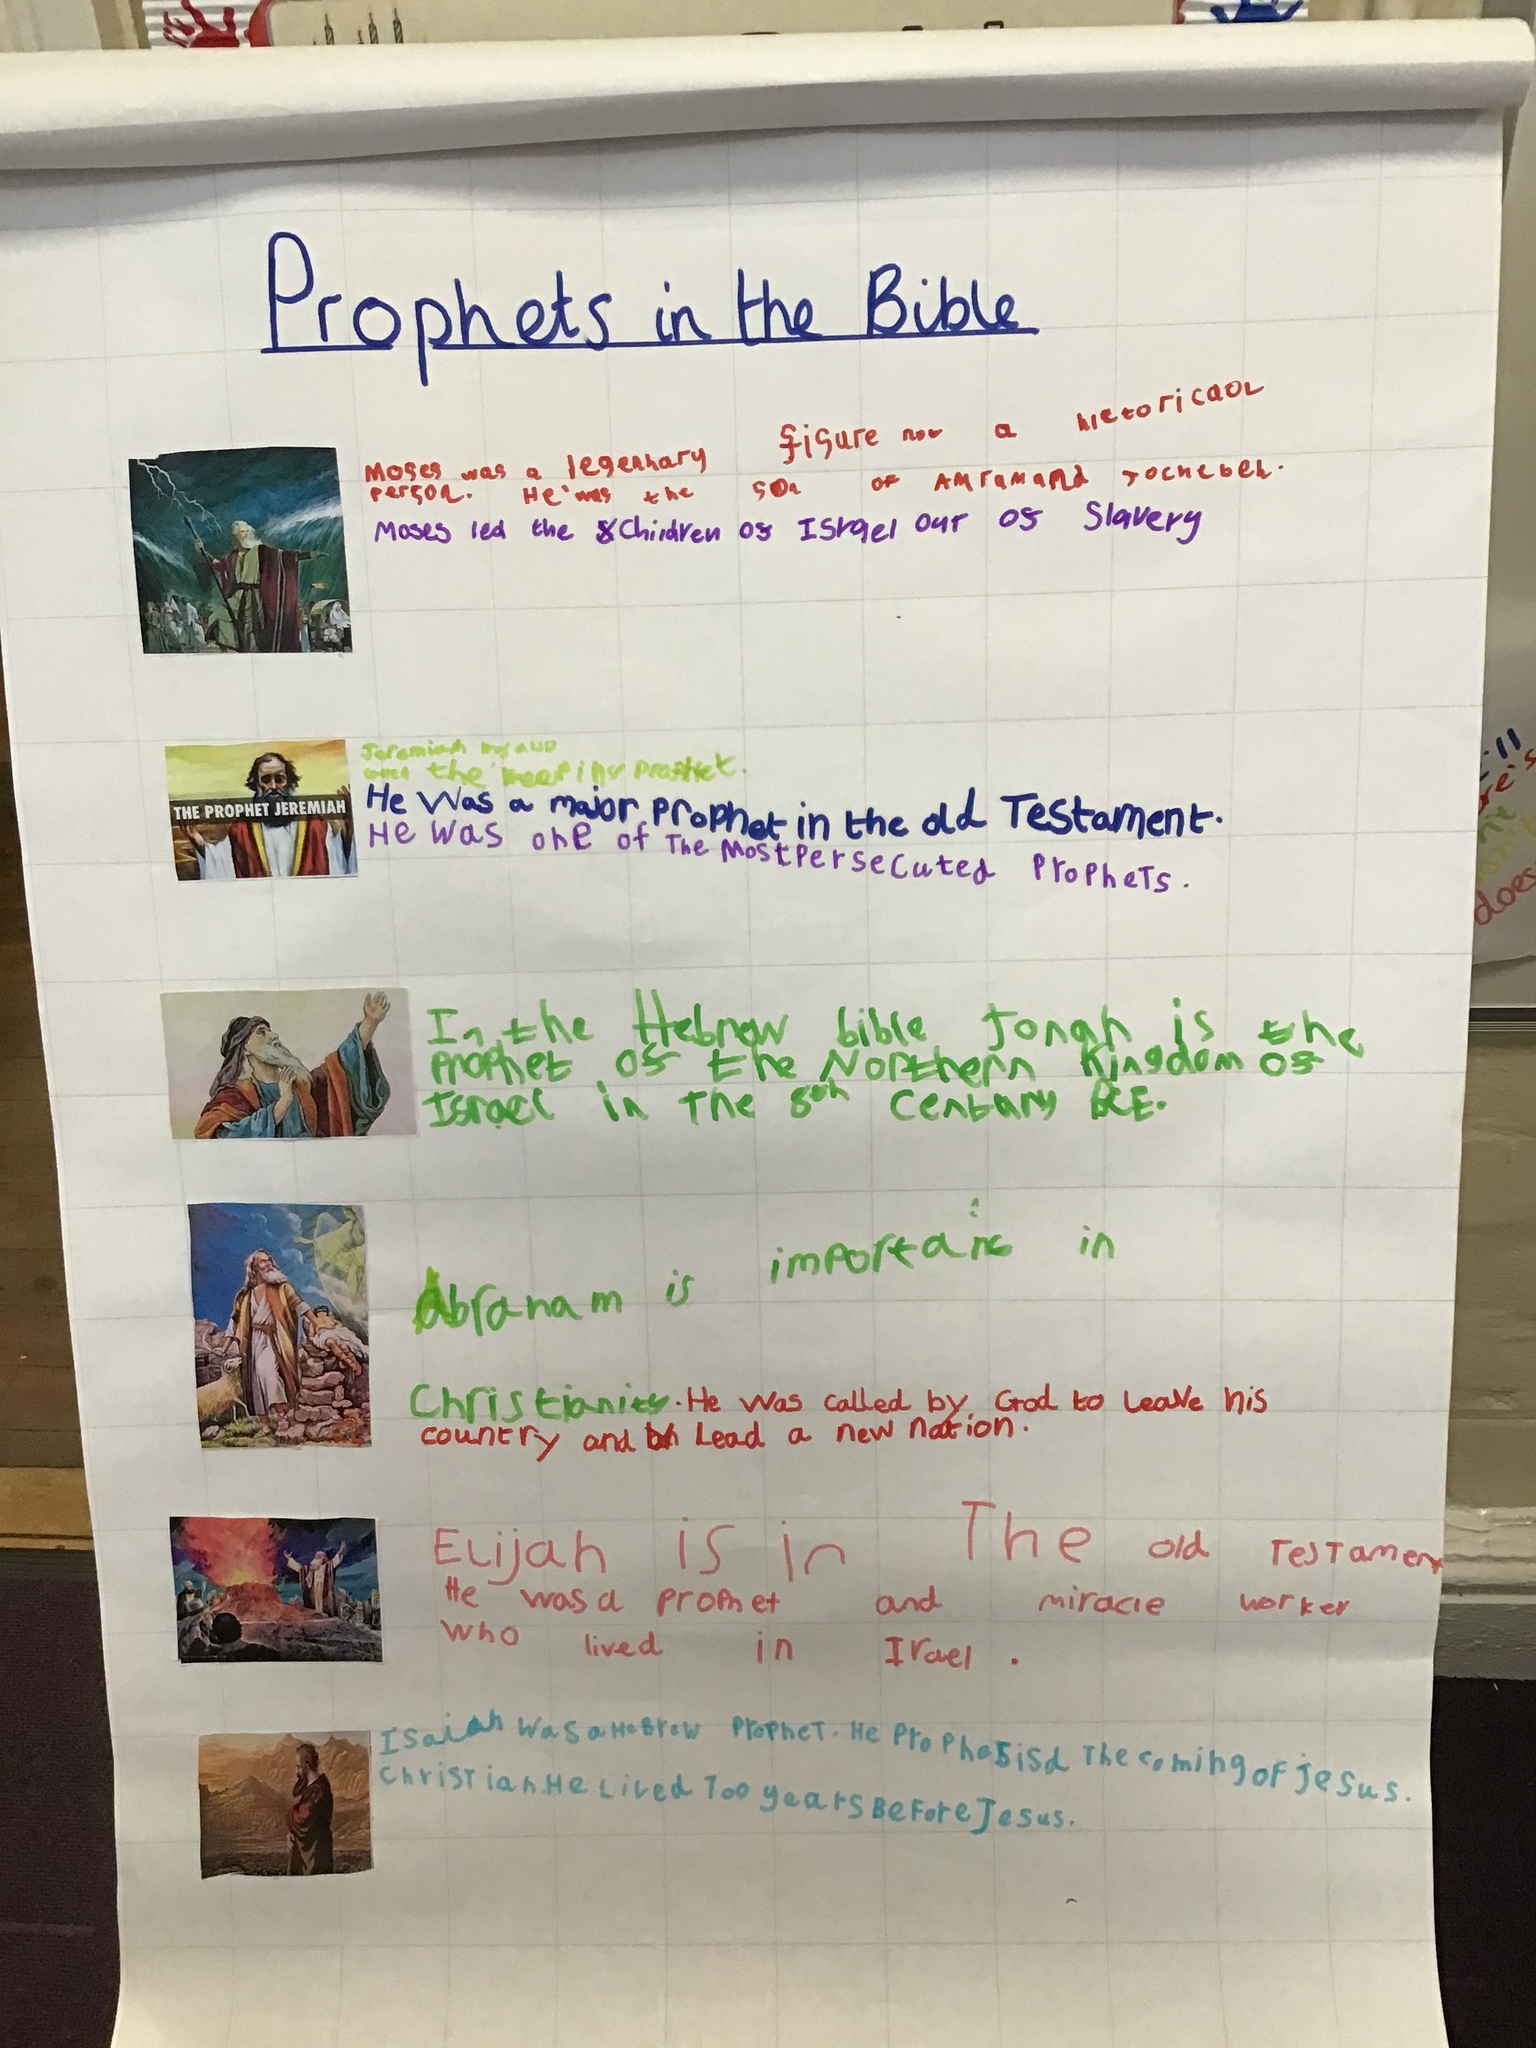 Prophets in the Bible
Moses was a legenhary figure nor a hictoricaol
person. He was the son of Amram and Jochebeh.
Moses led the Children of Israel our of Slavery
Jeremiah
the weeping prophet.
THE PROPHET JEREMIAH
He was a major prophet in the old Testament.
He was one of The Most Persecuted Prophets.
In the Hebrew bible Jonah is the
prophet of the Northern Kingdom of
Israel in The 8th Century BCE.
Abraham is important in
Christianity. He was called by God to Leave his
country and Lead a new nation.
Elijah is in The old Testament
He was a prophet and miracle worker
who lived in Israel.
Isaiah was a Hebrew Prophet. He Prophesisd The coming of Jesus.
Christian. He Lived 700 years Before Jesus.
does